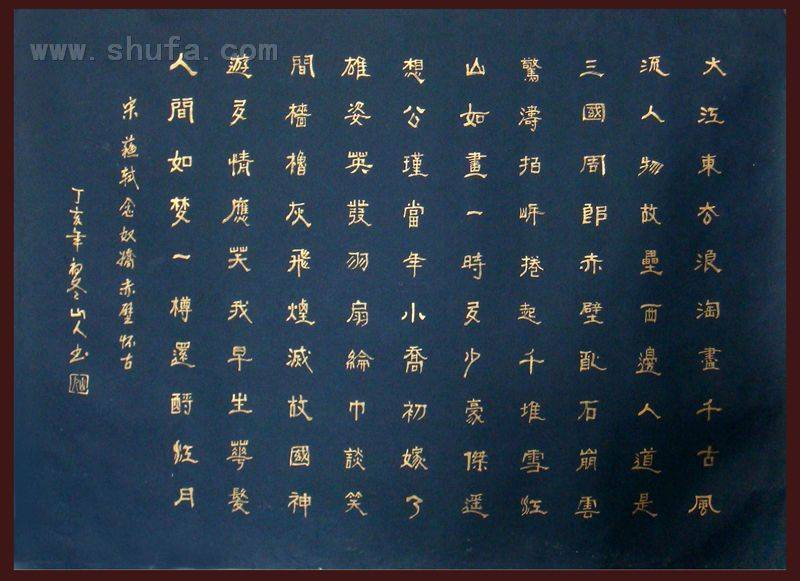 www.shufa.com
大江東去浪淘盡千古風
流人物故壘西邊人道是
三國周郎赤壁亂石崩雲
驚濤拍岸捲起千堆雪江
山如畫一時多少豪傑遥
想公瑾當年小喬初嫁了
雄姿英發羽扇綸巾談笑
間檣櫓灰飛煙滅故國神
遊多情應笑我早生華髮
人間如梦一樽還酹江月
宋蘇軾念奴嬌赤壁怀古
丁亥年山人书